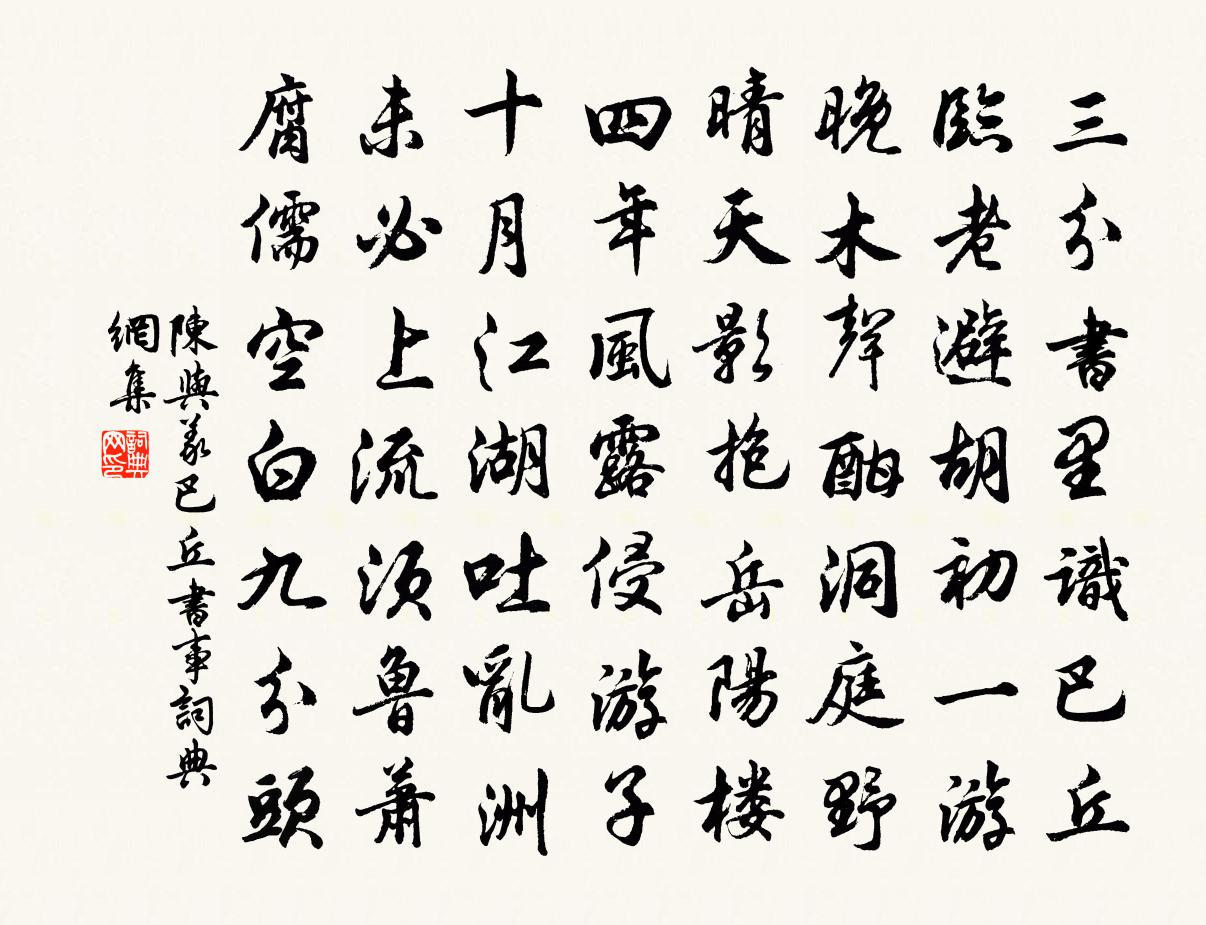 三分書里識巴丘
臨老避胡初一游
晚木聲酣洞庭野
晴天影抱岳陽楼
四年風露侵游子
十月江湖吐亂洲
未必上流須魯蕭
腐儒空白九分頭
陳與義巴丘書事詞典
網集
詞典
网印